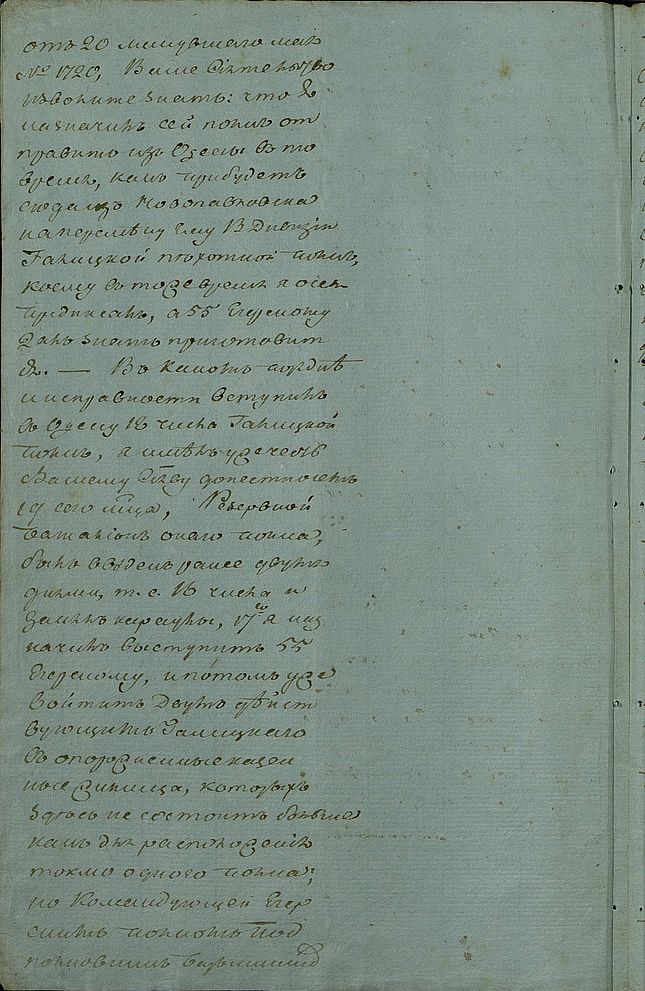 отъ 20 минувшаго мая
№ 1720, Ваше Сіятельство
изволите знать: что я
назначилъ сей полкъ от
править изъ Одессы въ то
время, какъ прибудетъ
сюда изъ Новопавловска
на перемѣну ему В дивизіи
Галицкой пѣхотной полкъ,
коему въ тоже время я
предписалъ, а 55 Егерскому
далъ знать приготовит
ся. — Въ какомъ порядкѣ
и исправности вступилъ
въ Одессу 18 числа Галицкой
полкъ, я имѣлъ уже честь
Вашему Сіяву донести
19 сего мца, Резервной
баталіонъ онаго полка,
былъ введенъ ранее двумя
днями, т. е. 16 числа и
занялъ караулы, 17го я наз
начилъ выступить 55
Егерскому, и потомъ уже
войтить двумъ дѣйст
вующимъ Галицкаго
въ опорожненные казен
ные жилища, которыхъ
здѣсь не состоитъ больше
какъ для расположенія
токмо одного полка;
но Командующей Егер
скимъ полкомъ Под
полковникъ